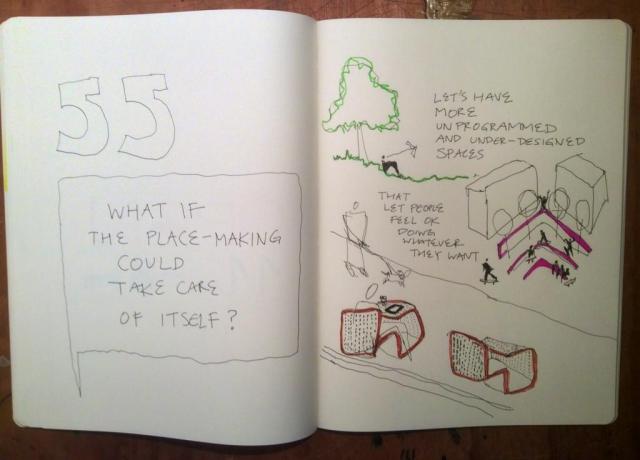 55
WHAT IF
THE PLACE-MAKING
COULD
TAKE CARE
OF ITSELF?
LET'S HAVE
MORE
UNPROGRAMMED
AND UNDER-DESIGNED
SPACES
THAT
LET PEOPLE
FEEL OK
DOING
WHATEVER
THEY WANT